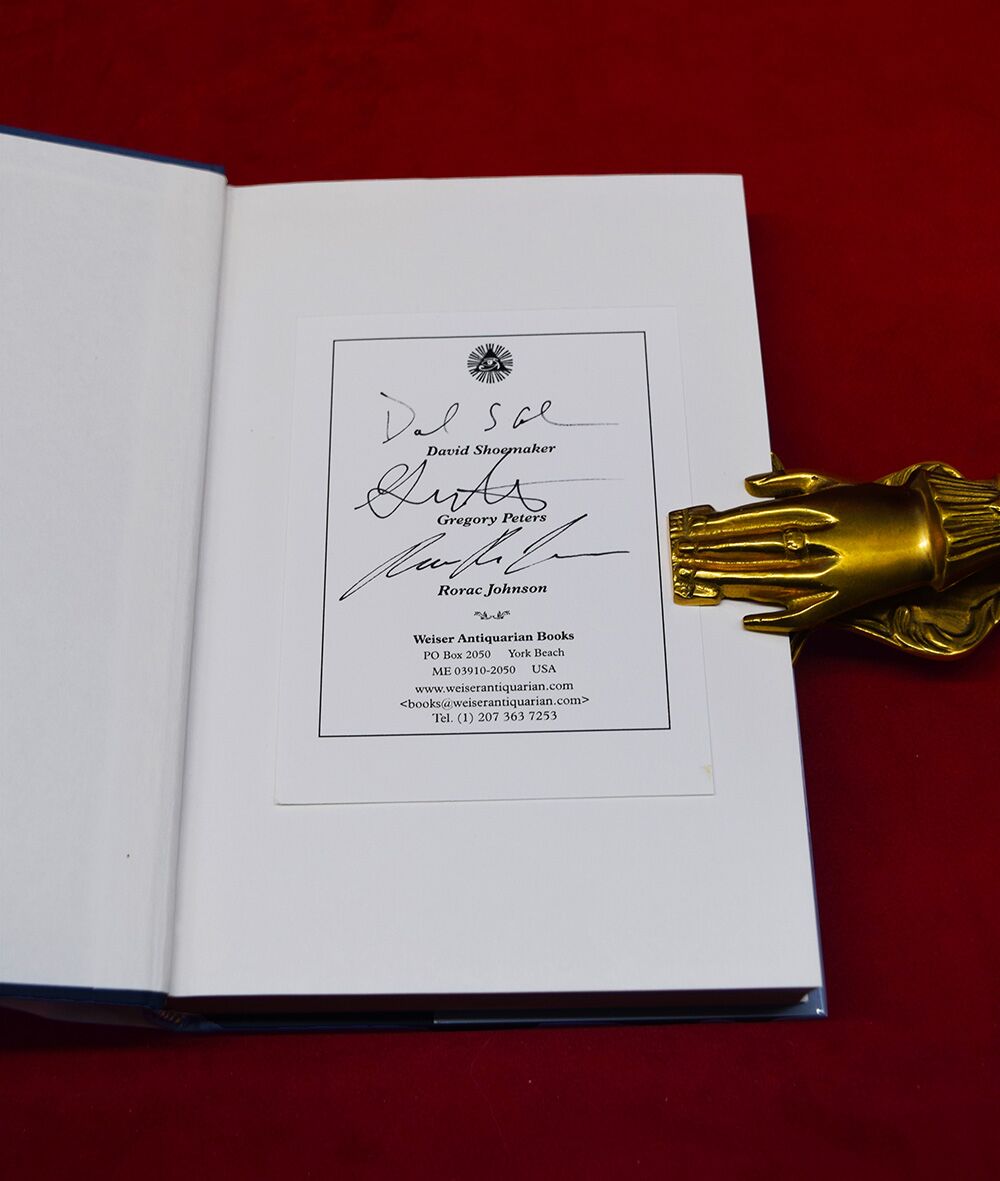 David Shoemaker
Gregory Peters
Rorac Johnson
Weiser Antiquarian Books
PO Box 2050 York Beach
ME 03910-2050 USA
www.weiserantiquarian.com
<books@weiserantiquarian.com>
Tel. (1) 207 363 7253